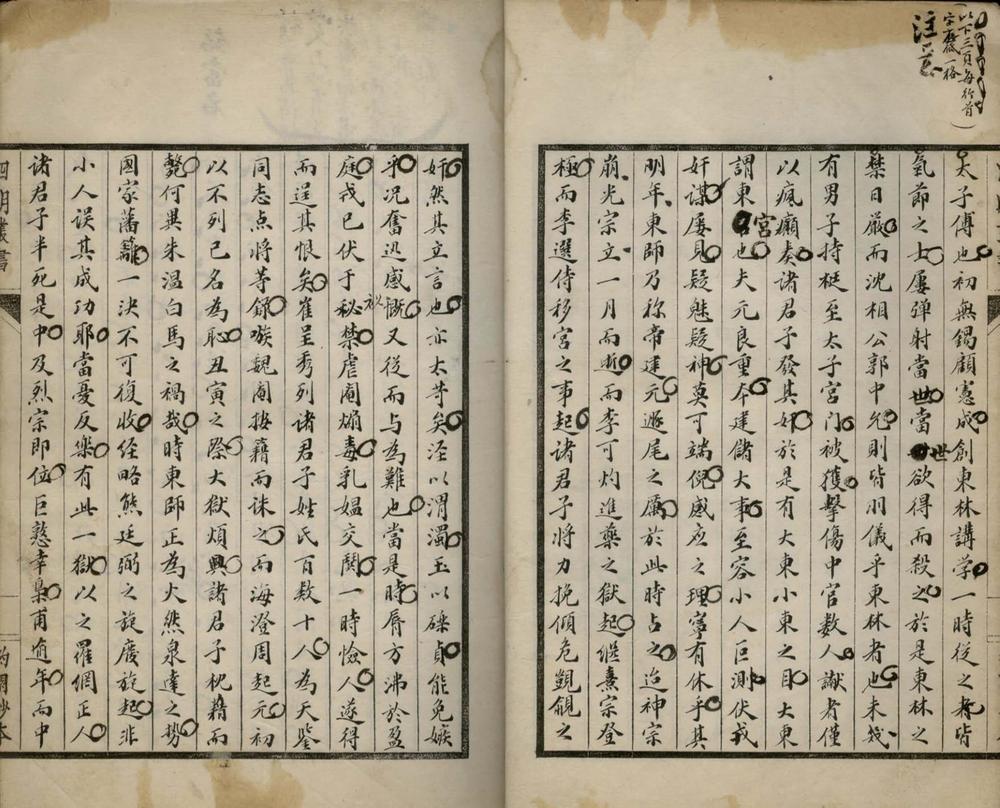 以下三頁每行首
字廢一格
太子傅也初無錫顧憲成創東林講学一時從之者皆
氣節之士屢弹射當世當世欲得而殺之於是東林之
禁日嚴而沈相公郭中允則皆羽儀乎東林者也未幾
有男子持梃至太子宮門被獲擊傷中官數人讞者僅
以瘋癲奏諸君子發其奸於是有大東小東之目大東
謂東宮也夫元良重本建儲大事至容小人叵測伏戎
奸謀屢見疑魅疑神莫可端倪感应之理寧有休乎其
明年東師乃称帝建元遼尾之厲於此時占之迨神宗
崩光宗立一月而逝而李可灼進藥之獄起继熹宗登
極而李選侍移宮之事起諸君子将力挽傾危覬覦之
奸然其立言也亦太苛矣泾以渭濁玉以碌貞能免嫉
乎况奮迅感慨又從而与為難也當是時脣方沸於盈
庭戎已伏于秘禁虐閹煽毒乳媼交鬨一時憸人遂得
而逞其恨矣崔呈秀列諸君子姓氏百数十人為天鉴
同志点將等錄嗾魏閹按籍而诛之而海澄周起元初
以不列已名為恥丑寅之際大獄煩興諸君子枕藉而
斃何異朱温白馬之禍哉時東師正為火然泉達之勢
國家藩籬一決不可復收经略熊廷弼之旋廢旋起非
小人误其成功耶當憂反樂有此一獄以之羅網正人
诸君子半死是中及烈宗即位巨憝幸梟甫逾年而中
四明叢書
約園抄本